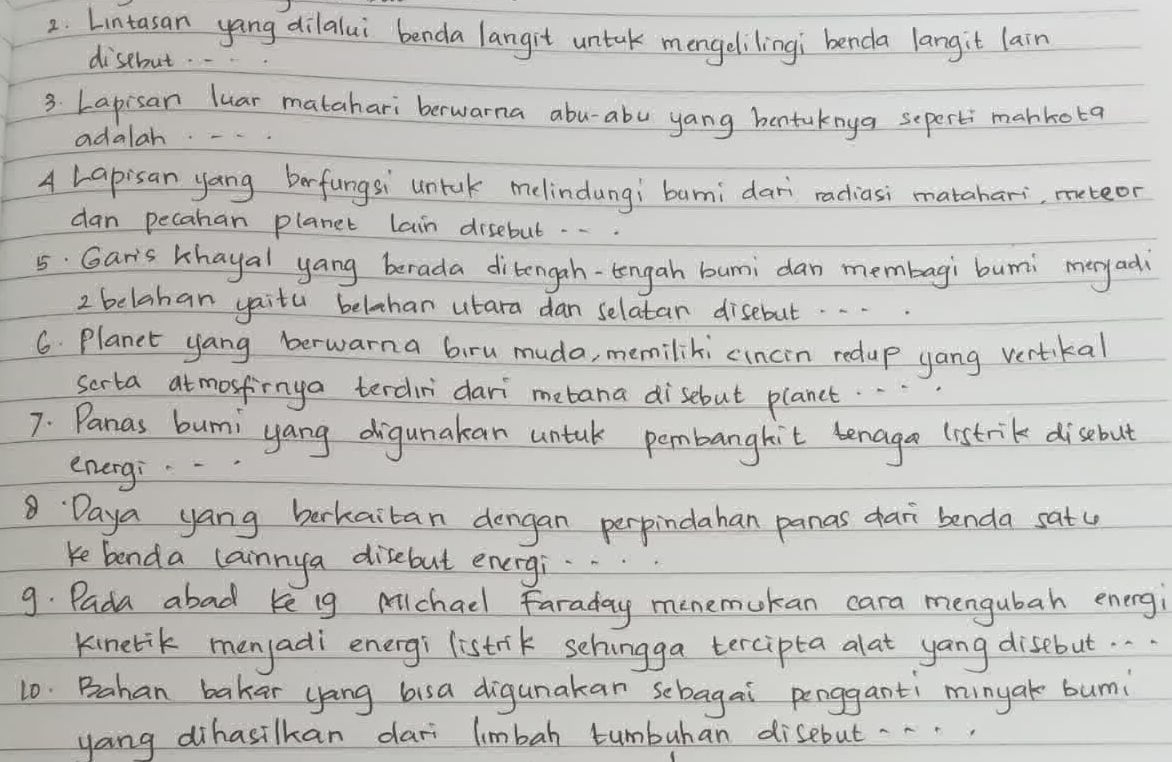 2. Lintasan yang dilalui benda langit untuk mengelilingi benda langit lain
disebut ....
3. Lapisan luar matahari berwarna abu-abu yang bentuknya seperti mahkota
adalah ....
4 Lapisan yang berfungsi untuk melindungi bumi dari radiasi matahari, meteor
dan pecahan planet lain disebut ...
5. Garis khayal yang berada ditengah-tengah bumi dan membagi bumi menjadi
2 belahan yaitu belahan utara dan selatan disebut ....
6. Planet yang berwarna biru muda, memiliki cincin redup yang vertikal
serta atmosfirnya terdiri dari metana disebut planet ....
7. Panas bumi yang digunakan untuk pembangkit tenaga listrik disebut
energi ...
8. Daya yang berkaitan dengan perpindahan panas dari benda satu
ke benda lainnya disebut energi ....
9. Pada abad ke 19 Michael Faraday menemukan cara mengubah energi
kinetik menjadi energi listrik sehingga tercipta alat yang disebut ...
10. Bahan bakar yang bisa digunakan sebagai pengganti minyak bumi
yang dihasilkan dari limbah tumbuhan disebut ....